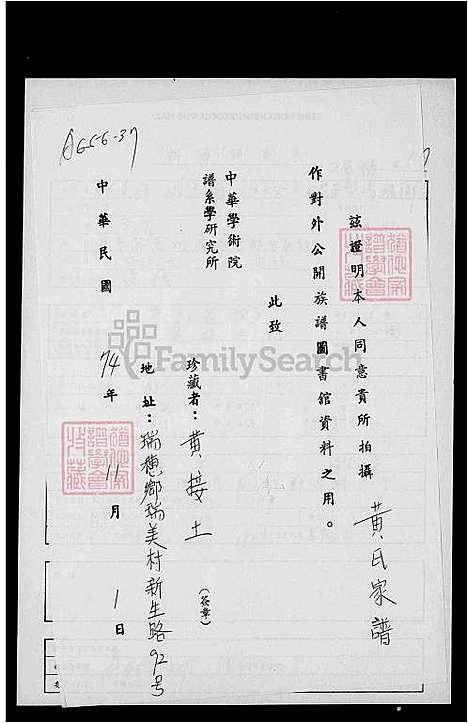 AG56-37
茲證明本人同意貴所拍攝 黃氏家譜
作對外公開族譜圖書館資料之用。
此致
中華學術院
譜系學研究所
珍藏者：黃接土 (簽章)
地址：瑞穗鄉瑞美村新生路92号
中華民國 74年 11月 1日
FamilySearch